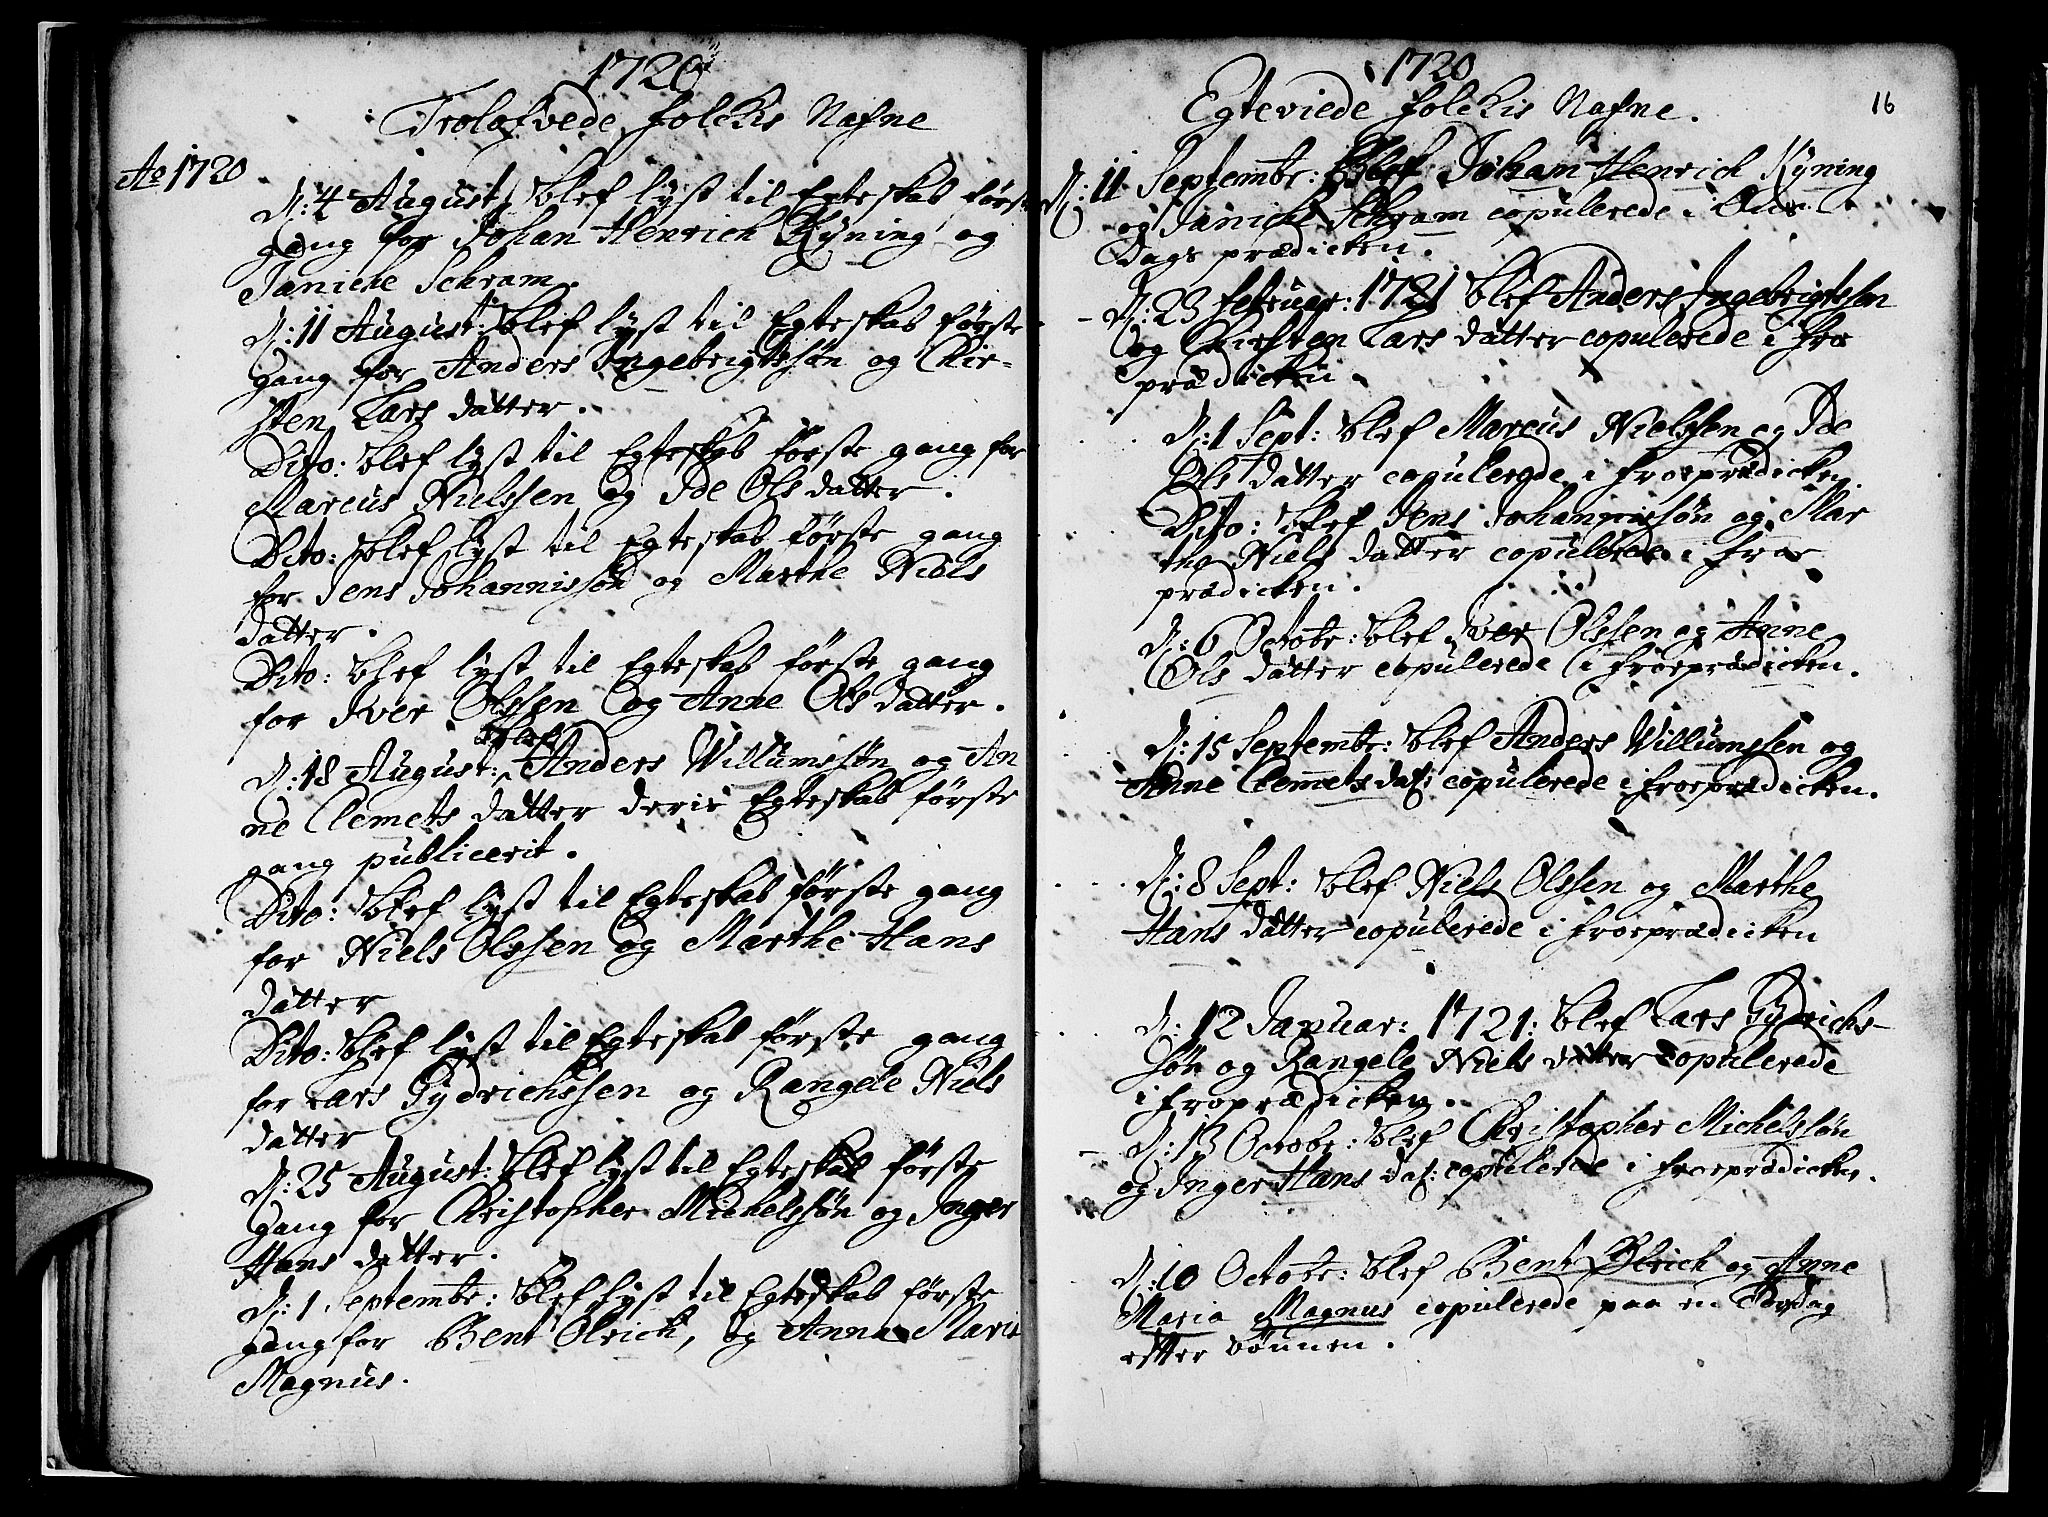 1720
Trolofvede folckis Nafne
Ao 1720
D: 4 August, Blef lyst til Egteskab første
gang for Johan Henrich Kyning og
Janiche Schram.
D: 11 August: Blef lyst til Egteskab første
gang for Anders Ingebrigtssøn og Kir-
sten Lars datter.
Dito: blef lyst til Egteskab første gang for
Marcus Nielssen og Ide Ols datter.
Dito: blef lyst til Egteskab første gang
for Jens Johannissøn og Marthe Niels
datter.
Dito: blef lyst til Egteskab første gang
for Iver Olssen og Anne Ols datter.
blef
D: 18 August: Anders Willumssøn og An
ne Clemets datter deris Egteskab første
gang publicerit.
Dito: blef lyst til Egteskab første gang
for Niels Olssen og Marthe Hans
datter
Dito: blef lyst til Egteskab første gang
for Lars Gydrichssen og Rangele Niels
datter
D: 25 August: blef lyst til Egteskab første
gang for Christopher Michelssøn og Inger
Hans datter.
D: 1 Septembr: blef lyst til Egteskab første
gang for Bent Olrich, og Anna Maria
Magnus.
1720
Egteviede folckis Nafne.
16
D: 11 Septembr: Blef Johan Henrich Kyning
og Janiche Schram copulerede i
Dags prædicken.
D: 23 februar: 1721 blef Anders Ingebrigtssøn
og Kirsten Lars datter copulerede i fro
prædicken.
D: 1 Sept: blef Marcus Nielssen og Ide
Ols datter copulerede i froeprædicken
Dito: blef Jens Johannissøn og Mar
the Niels datter copulerede i froe
prædicken.
D: 6 Octobr: blef Iver Olssen og Anne
Ols datter copulerede i froeprædicken.
D: 15 Septembr: blef Anders Willumssen og
Anne Clemets dat: copulerede i froeprædicken.
D: 8 Sept: blef Niels Olssen og Marthe
Hans datter copulerede i froeprædicken
D: 12 Januar: 1721: blef Lars Gydrichs-
søn og Rangele Niels datter copulerede
i froprædicken.
D: 13 Octobr: blef Christopher Michelssøn
og Inger Hans dat: copulerede i froeprædicken.
D: 10 Octobr: blef Bent Olrich og Anne
Maria Magnus copulerede paa en Torsdag
efter bönnen.